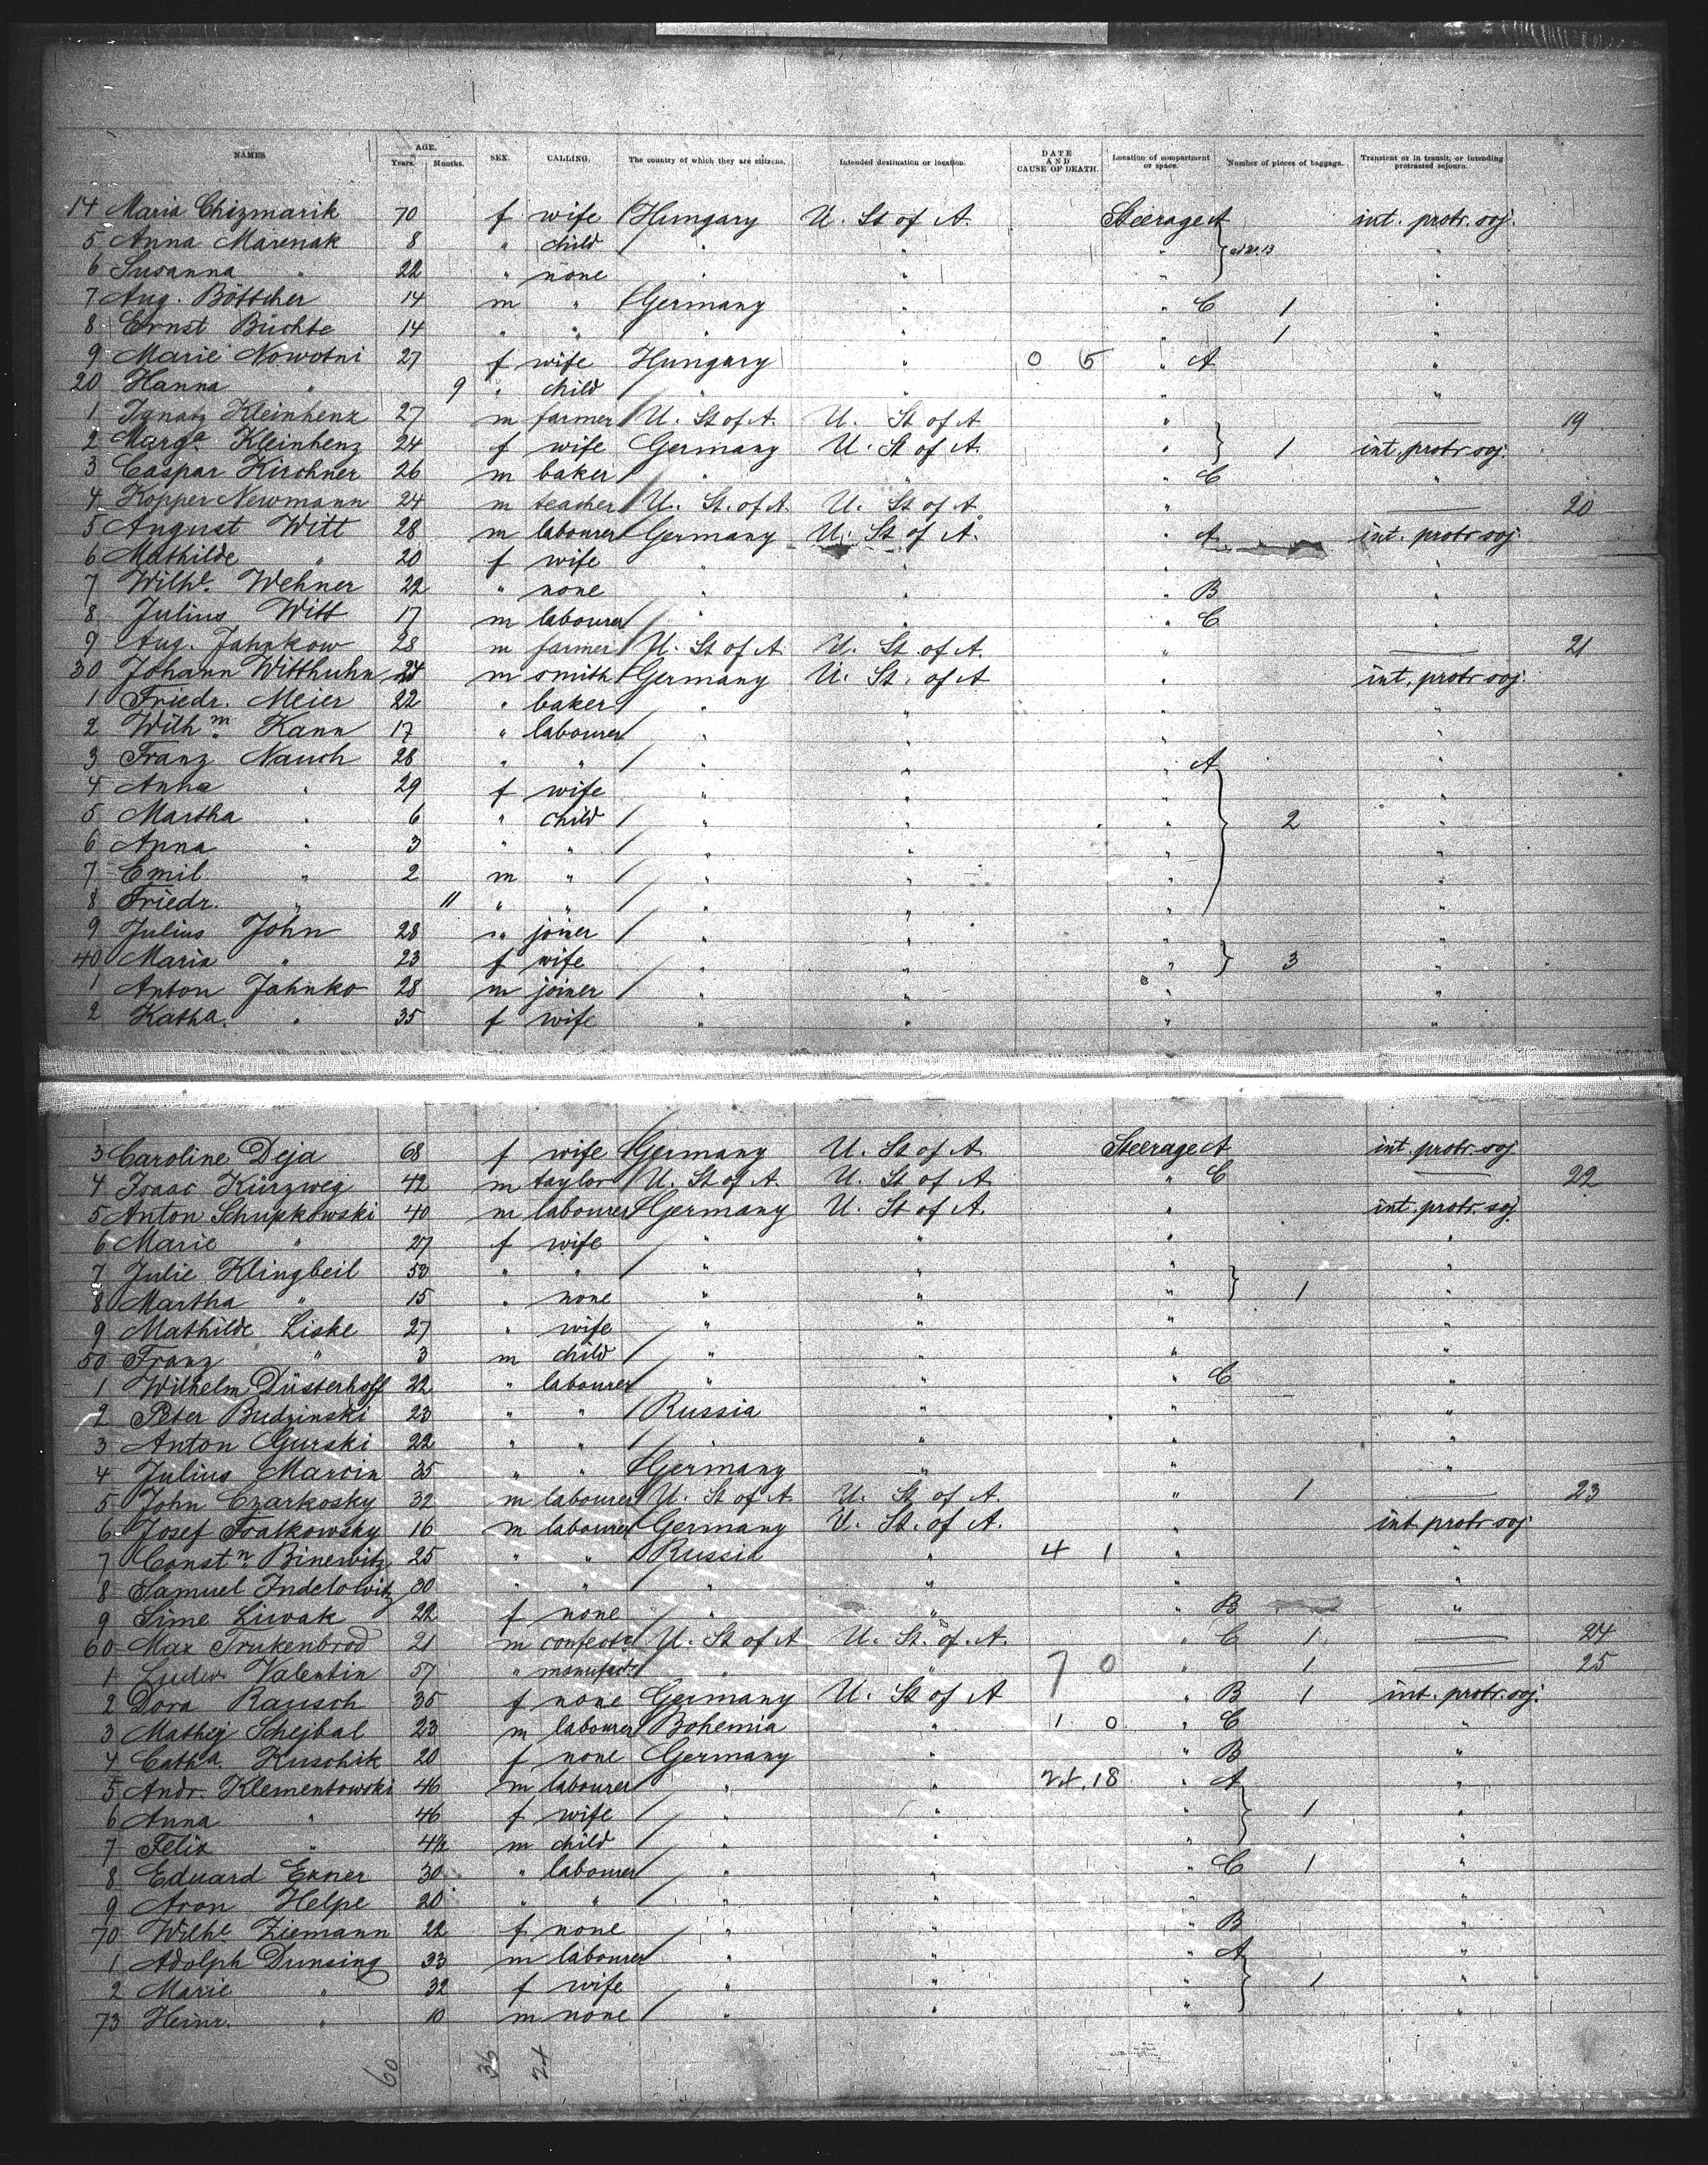 NAMES AGE. Years. Months. SEX. CALLING. The country of which they are citizens. Intended destination or location. DATE AND CAUSE OF DEATH. Location of compartment or space. Number of pieces of baggage. Transient or in transit, or intending protracted sojourn.
14 Maria Chizmarik 70 f wife Hungary U. St of A. Steerage A int. protr. soj.
5 Anna Marenak 8 " child " " " "
6 Susanna " 22 " none " " " "
7 Aug. Böttcher 14 m " Germany " " C 1 "
8 Ernst Büchte 14 " " " " " 1 "
9 Marie Nowotni 27 f wife Hungary " 0 5 " A "
20 Hanna " 9 " child " " " "
1 Ignatz Kleinhenz 27 m farmer U. St of A. U. St of A " — 19
2 Marge Kleinhenz 24 f wife Germany U. St of A. " 1 int. protr. soj.
3 Caspar Kirchner 26 m baker " " " C "
4 Kopper Newmann 24 m teacher U. St. of A U. St of A " — 20
5 August Witt 28 m labourer Germany U. St of A. " A int. protr soj.
6 Mathilde " 20 f wife " " " "
7 Wilhe. Wehner 22 " none " " " B "
8 Julius Witt 17 m labourer " " " C "
9 Aug. Jahnkow 28 m farmer U. St of A U. St of A. " — 21
30 Johann Witthuhn 24 m smith Germany U. St. of A " int. protr soj.
1 Friedr. Meier 22 " baker " " " "
2 Wilhm. Kann 17 " labourer " " " "
3 Franz Nauch 28 " " " " " A "
4 Anna " 29 f wife " " " "
5 Martha " 6 " child " " " 2 "
6 Anna " 3 " " " " " "
7 Emil " 2 m " " " " "
8 Friedr. " 11 " " " " " "
9 Julius John 28 " joiner " " " "
40 Maria " 23 f wife " " " 3 "
1 Anton Jahnko 28 m joiner " " " "
2 Katha. " 35 f wife " " " "
3 Caroline Deja 68 f wife Germany U. St of A Steerage A int. protr. soj.
4 Isaac Kürzweg 42 m taylor U. St of A. U. St of A. " C — 22
5 Anton Schupkowski 40 m labourer Germany U. St of A. " int. protr. soj.
6 Marie " 27 f wife " " " "
7 Julie Klingbeil 53 " " " " " "
8 Martha " 15 " none " " " 1 "
9 Mathilde Liske 27 " wife " " " "
50 Franz " 3 m child " " " "
1 Wilhelm Düsterhoff 22 " labourer " " " C "
2 Peter Budzinski 23 " " Russia " " "
3 Anton Gurski 22 " " " " " "
4 Julius Marcin 35 " " Germany " " "
5 John Czarkosky 32 m labourer U. St of A. U. St of A. " 1 — 23
6 Josef 16 m labourer Germany U. St. of A. " int. protr soj
7 Constn. Binewitz 25 " " Russia " 4 1 " "
8 Samuel Indelowitz 30 " " " " " "
9 Sime Liwak 22 f none " " " B "
60 Max Trukenbrod 21 m U. St of A U. St. of. A. " C 1 — 24
1 Valentin 57 " " " 7 0 " 1 — 25
2 Dora Rausch 35 f none Germany U. St of A " B 1 int. protr. soj.
3 Mathej Schejbal 23 m labourer Bohemia " 1 0 " C "
4 Catha. Kuschik 20 f none Germany " " B "
5 Andr. Klementowski 46 m labourer " " 24.18 " A "
6 Anna " 46 f wife " " " 1 "
7 Felix " 4½ m child " " " "
8 Eduard Exner 30 " labourer " " " C 1 "
9 Aron Helpe 20 " " " " " "
70 Wilhe Ziemann 22 f none " " " B "
1 Adolph Dunsing 33 m labourer " " " A "
2 Marie " 32 f wife " " " 1 "
73 Heinr. " 10 m none " " " "
60 36 24